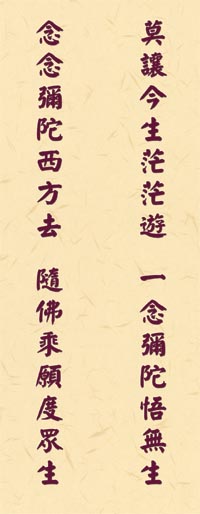 莫讓今生茫茫遊　一念彌陀悟無生
念念彌陀西方去　隨佛乘願度眾生